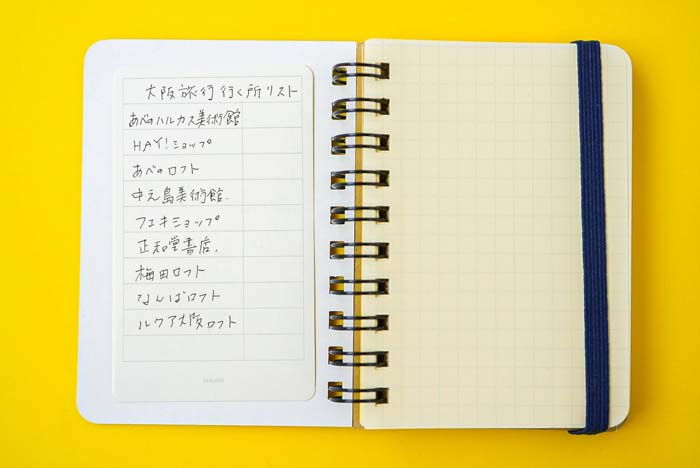 大阪旅行行く所リスト
あべのハルカス美術館
HAY!ショップ
あべのロフト
中之島美術館.
フエキショップ
正和堂書店.
梅田ロフト
なんばロフト
ルクア大阪ロフト